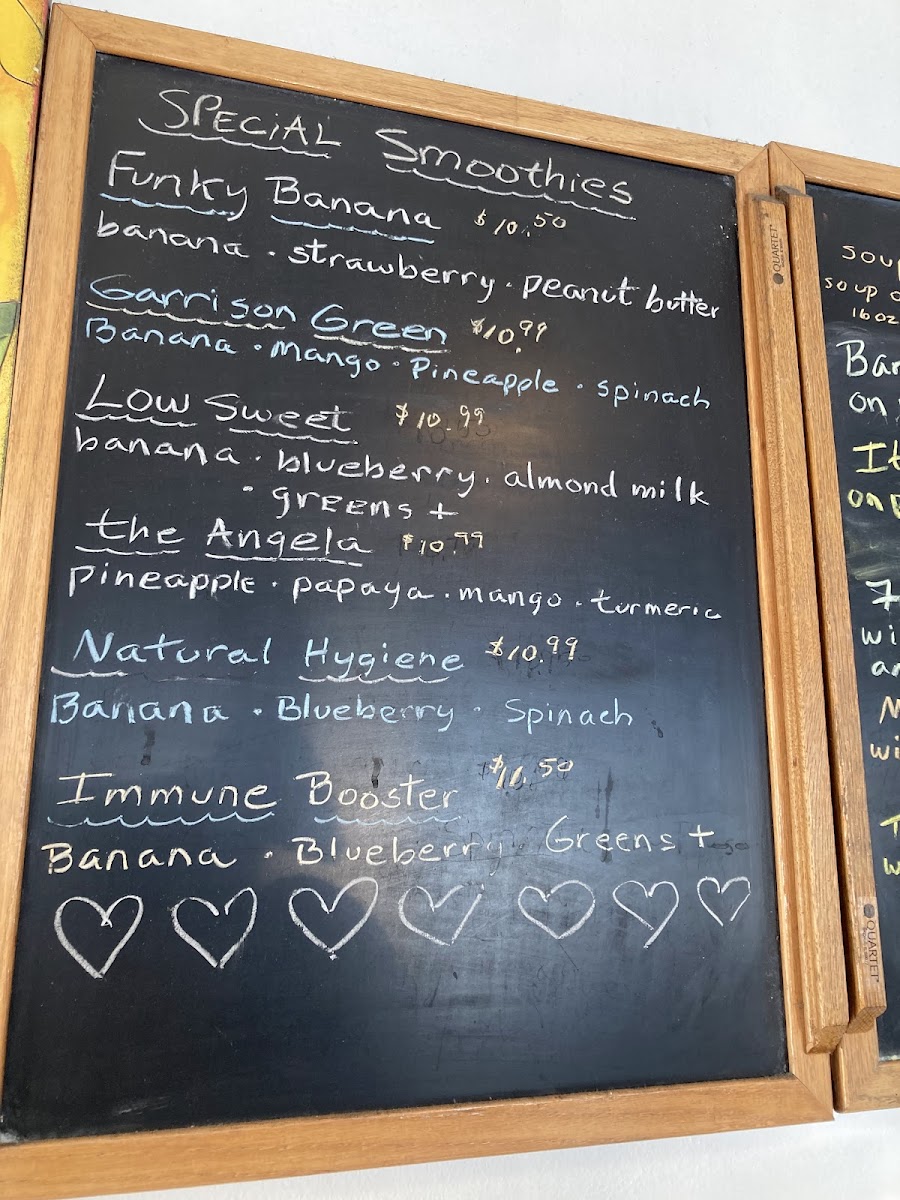 SPECiAL Smoothies
Funky Banana $10.50
banana · strawberry · peanut butter
Garrison Green $10.99
Banana · mango · Pineapple · spinach
Low Sweet $10.99
banana · blueberry · almond milk
· greens +
the Angela $10.99
pineapple · papaya · mango · turmeric
Natural Hygiene $10.99
Banana · Blueberry · Spinach
Immune Booster $11.50
Banana · Blueberry · Greens +
QUARTET
QUARTET
soup
16 oz
on